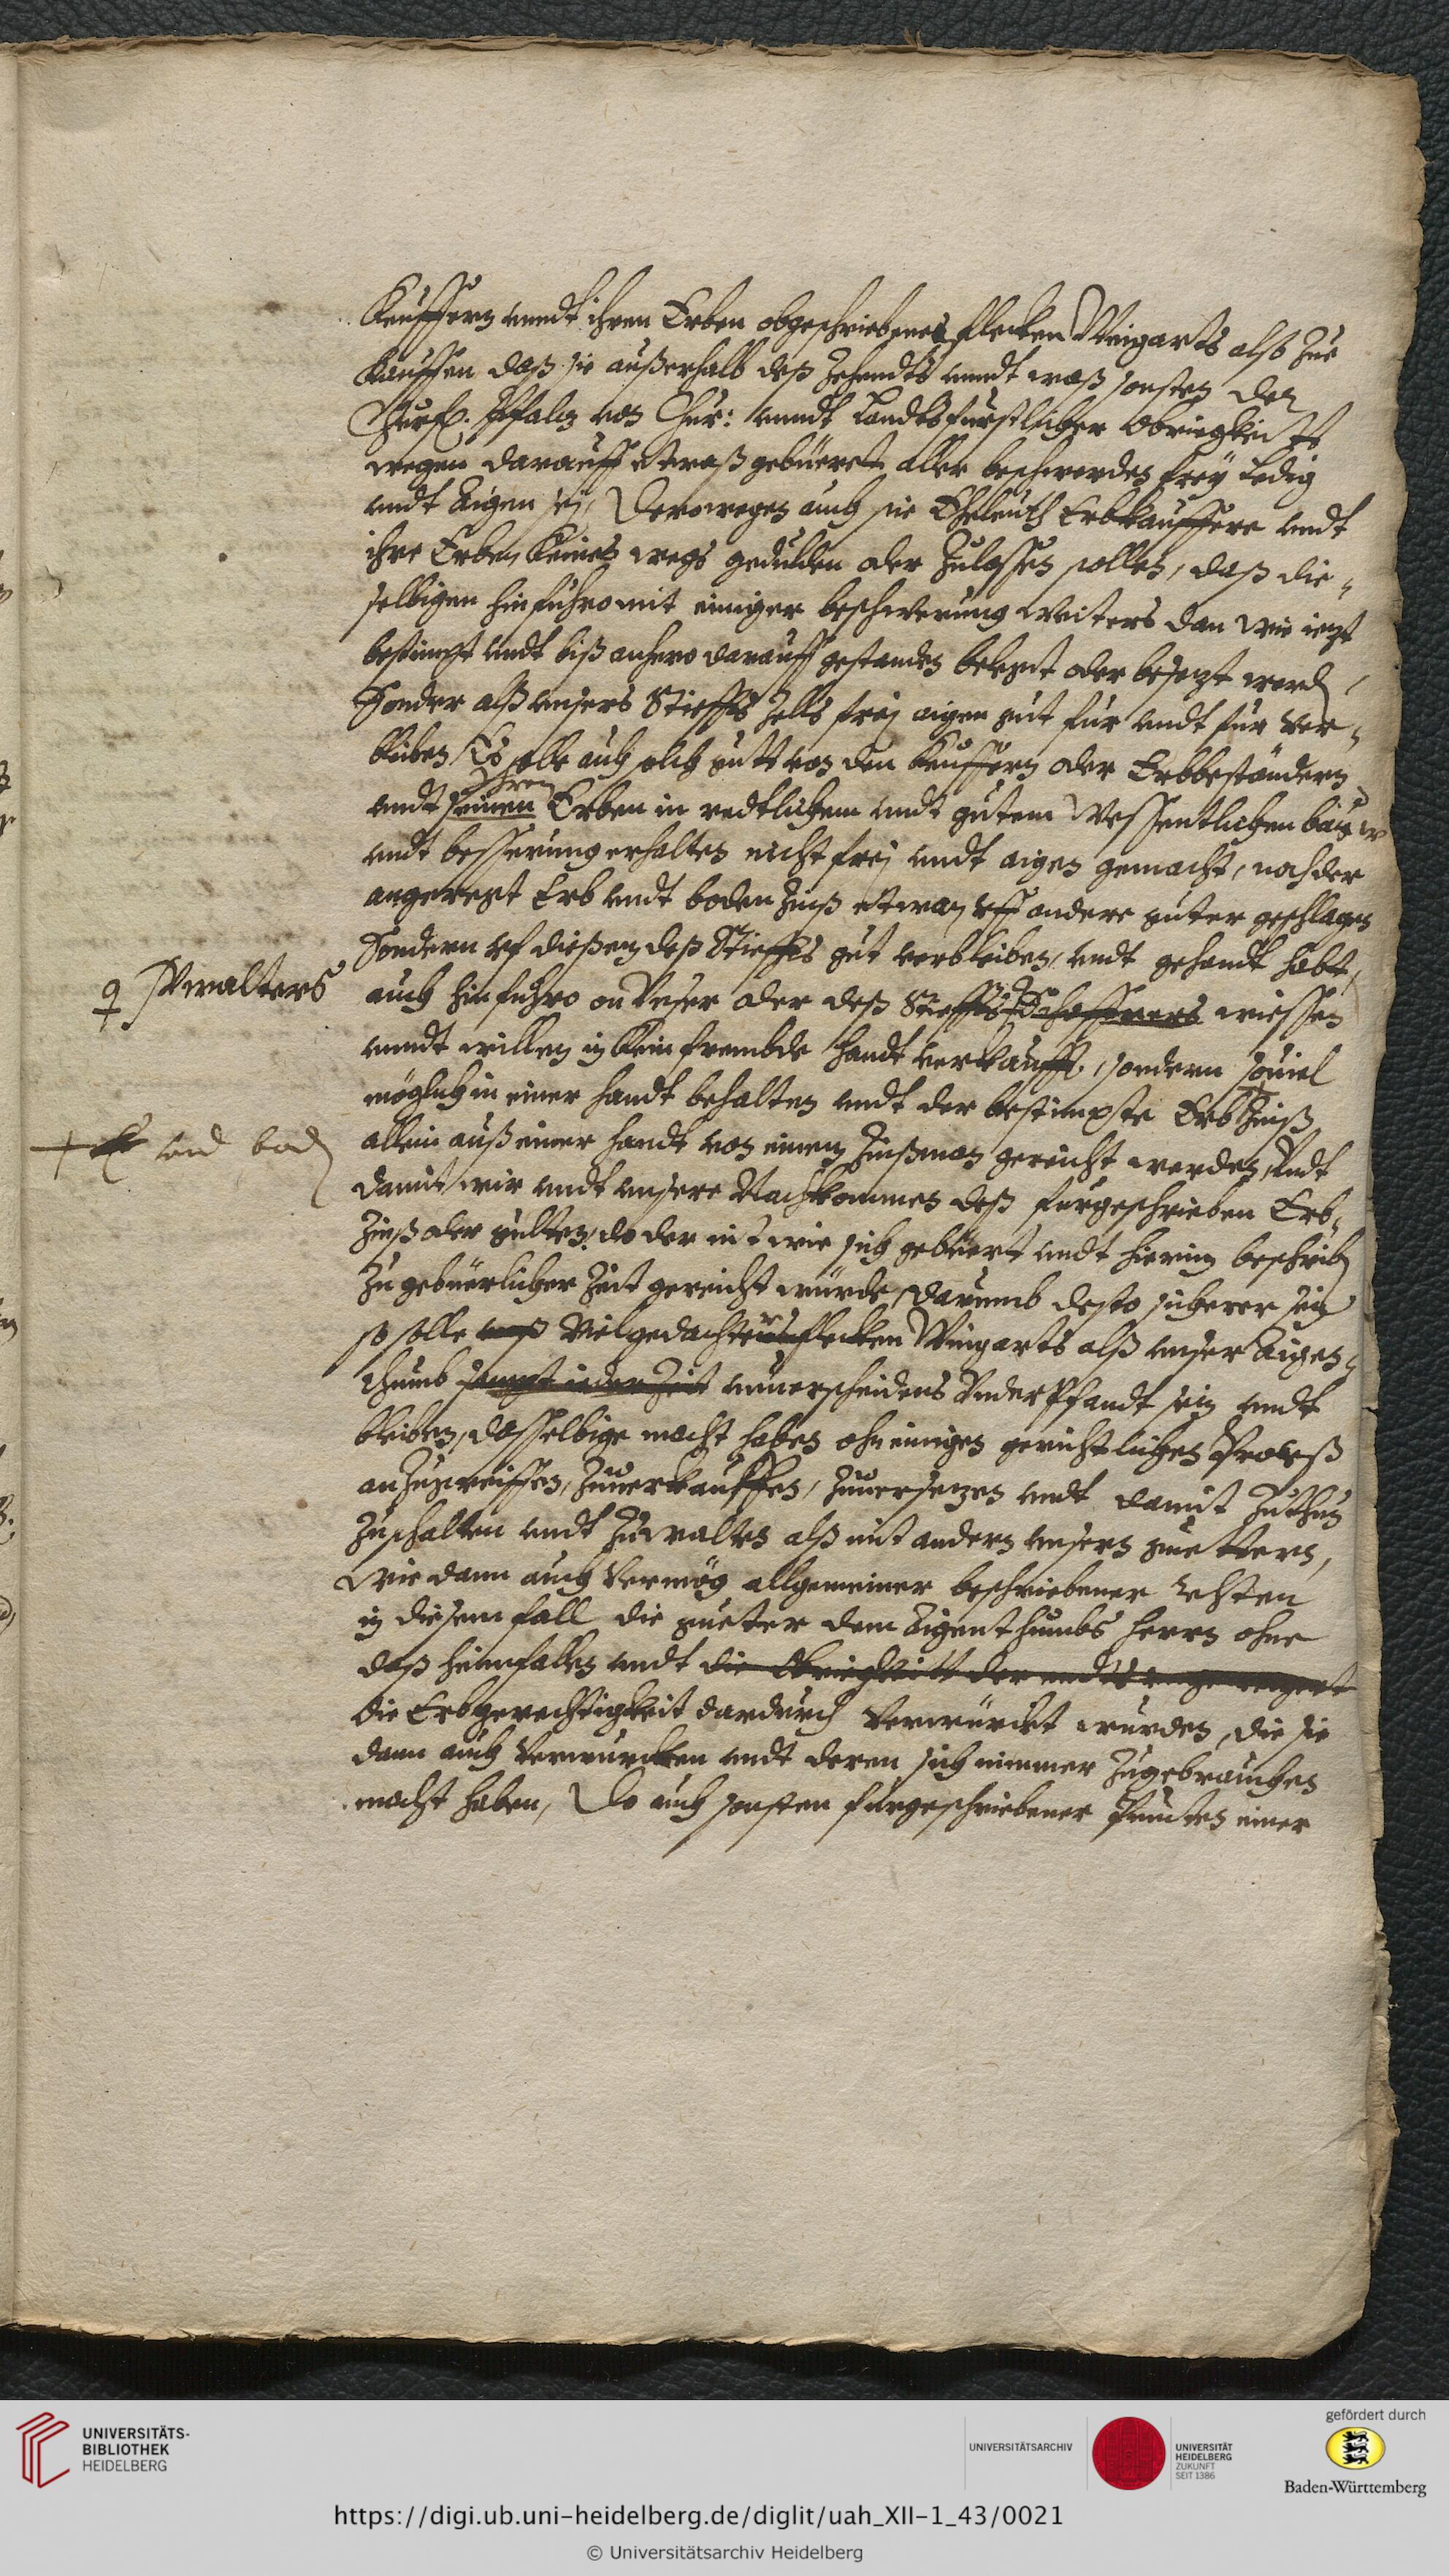 Keuffern unndt ihren Erben obgeschriebenes flecken Wingarts alß zue
kauffen daß sie außerhalb deß Zehendts unndt waß sonsten der
Churf. Pfaltz von Chur: unndt Landtsfürstlicher Obriegkeitts
wegen darauff etwaß gebüerett aller beschwerden frey ledig
undt Aigen sej, Derowegen auch sie Eheleuth Erbkauffere undt
ihre Erben keines wegs gedulden oder Zulassen sollen, daß die¬
selbigen hinführo mit einiger beschwerung weiters dan wie ietzt
bestimpt undt biß anhero darauff gestanden belegt oder besetzt werd,
Sonder alß unsers Stieffts Zells frej aigen gut für undt für ver¬
bleiben Es solle auch solch gutt von den Keuffern oder Erbbeständern
ihren
undt seinen Erben in redtlichem undt gutem Wessentlichen bauw
undt besserung erhalten nicht frej undt aigen gemacht, noch der
angeregt Erb undt boden Zinß etwan uff andere güter geschlagen
Sondern uf dießem deß Stieffts gut verbleiben, undt gehandt habt,
♀ Vrwalters
auch hinführo on Unser oder deß Stieffts Schaffners wiessen
unndt willen in klein frembde handt verkaufft, sondern souiel
möglich in einer handt behalten undt der bestimpte Erb Zinß
und bod
allein auß einer handt von einem Zinßman gereicht werden, Undt
damit wir undt unsere Nachkommen deß fürgeschrieben Erb¬
Zinß oder gülten, do der nit wie sich gebüert undt hierin beschrieb
Zu gebüerlicher Zeit gereicht würde, darumb desto sicherer sein
so solle vielgedachter flecken Wingarts alß unser Aigen¬
thumb sampt ieder Zeit unuerscheidens Underpfandt sein undt
bleiben, dasselbige macht haben ohn einigen gerichtlichen Proceß
anzugreiffen, Zuuerkauffen, Zuuersetzen undt damit Zuthun
Zuschalten undt Zuwalten alß mit andern unsern guettern,
Wie dann auch Vermög allgemeiner beschriebener rechten
in diesem fall die gueter dem Aigenthumbs herrn ohne
daß heimfallen undt die Obriegkeitt
die Erbgerechtigkeit dardurch Verwürckt wurden, die sie
dann auch Verwürcken undt deren sich nimmer Zugebrauchen
macht haben, Do auch sonsten fürgeschriebener Puncten einer
UNIVERSITÄTS-
BIBLIOTHEK
HEIDELBERG
UNIVERSITÄTSARCHIV
UNIVERSITÄT
HEIDELBERG
ZUKUNFT
SEIT 1386
gefördert durch
Baden-Württemberg
https://digi.ub.uni-heidelberg.de/diglit/uah_XII-1_43/0021
© Universitätsarchiv Heidelberg